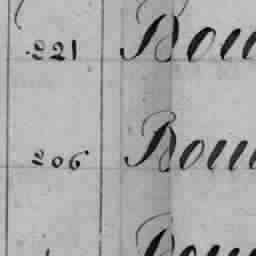 221 Bou
206 Bou
Bou